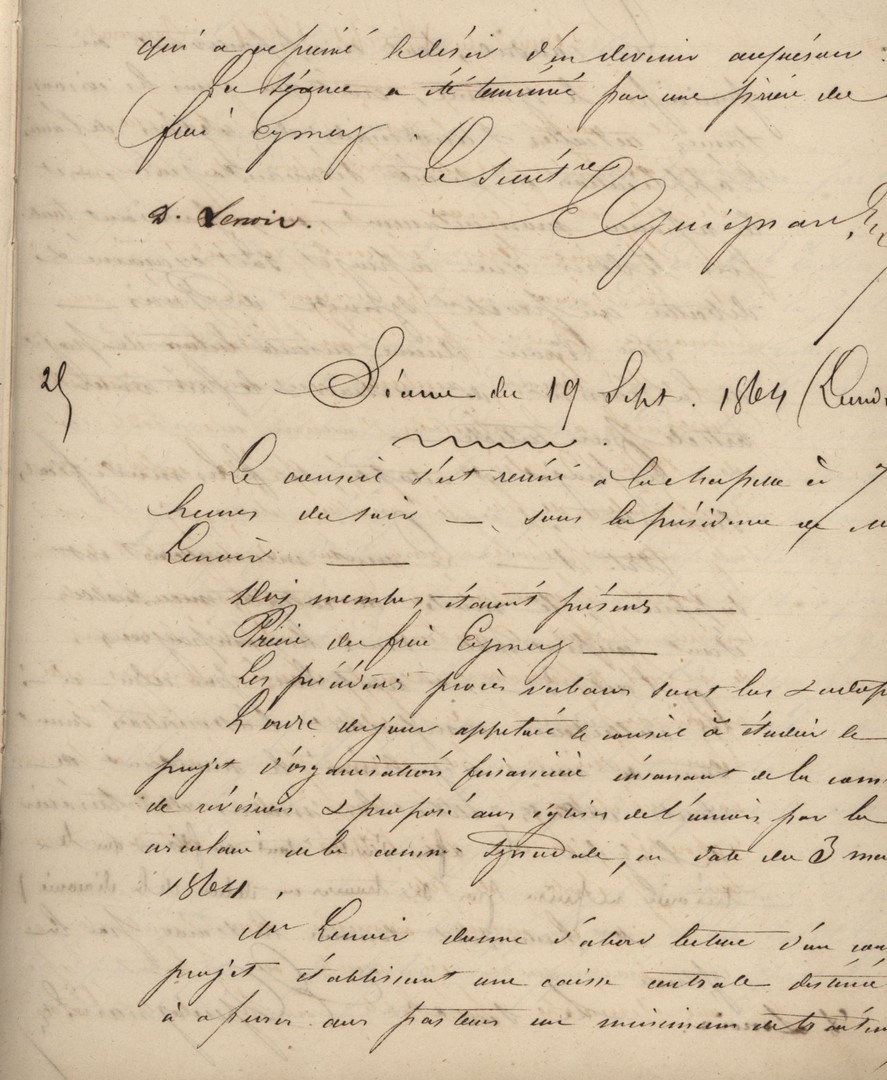 qui a exprimé le désir d'en devenir acquéreur.
La séance a été terminée par une prière du
frère Eymery.
Le Secrét.re
D. Lenoir. Guignard
25
Séance du 19 Sept. 1864 (Lund
Le conseil s'est réuni à la chapelle à 7
heures du soir — sous la présidence de M
Lenoir —
Dix membres étaient présents —
Prière du frère Eymery —
Les précédents procès verbaux sont lus & adop
L'ordre du jour appelait le conseil à étudier le
projet d'organisation financière émanant de la com
de révision & proposé aux églises de l'union par la
circulaire de la comm. synodale, en date du 3 ma
1864.
Mr Lenoir donne d'abord lecture d'un con
projet établissant une caisse centrale destinée
à assurer aux pasteurs un minimum de traitem